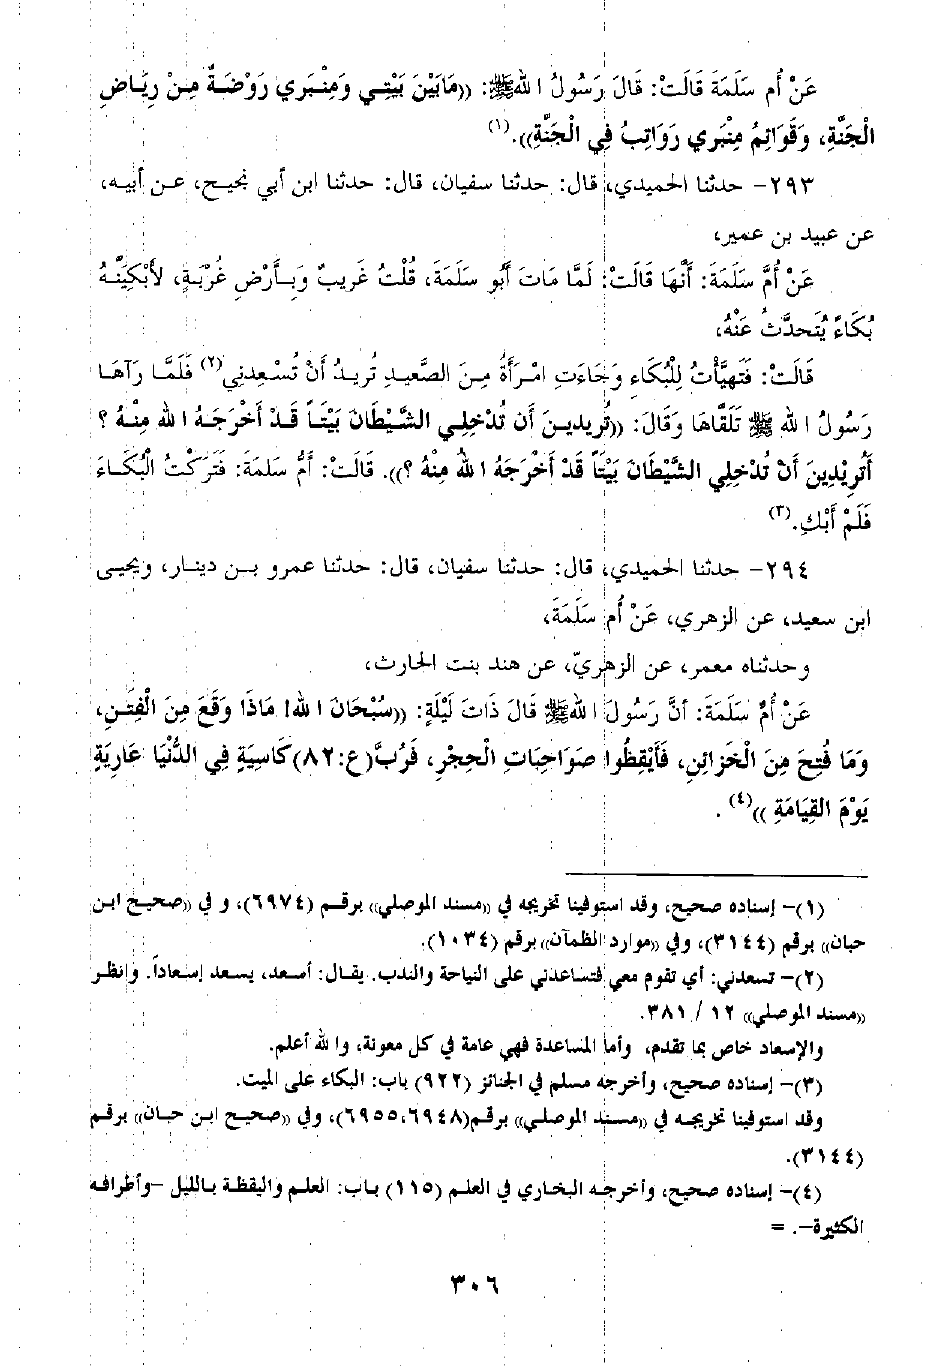 عَنْ أُم سَلَمَةَ قَالَتْ: قَالَ رَسُولُ اللهﷺ: ((مَابَيْنَ بَيْتِي وَمِنْبَرِي رَوْضَةٌ مِنْ رِيَاضِ
الْجَنَّةِ، وَقَوَائِمُ مِنْبَرِي رَوَاتِبُ فِي الْجَنَّةِ)).(١)
٢٩٣- حدثنا الحميدي، قال: حدثنا سفيان، قال: حدثنا ابن أبي نجيح، عن أبيه،
عن عبيد بن عمير،
عَنْ أُمِّ سَلَمَةَ: أَنَّهَا قَالَتْ: لَمَّا مَاتَ أَبُو سَلَمَةَ، قُلْتُ غَرِيبٌ وَبِأَرْضِ غُرْبَةٍ، لأَبْكِيَنَّهُ
بُكَاءً يُتَحدَّثُ عَنْهُ،
قَالَتْ: فَتَهيَّأْتُ لِلْبُكَاءِ وَجَاءَتِ امْرَأَةٌ مِنَ الصَّعِيدِ تُرِيدُ أَنْ تُسْعِدنِي(٢) فَلَمَّا رَآهَا
رَسُولُ الله ﷺ تَلَقَّاهَا وَقَالَ: ((تُرِيدِينَ أَن تُدْخِلِي الشَّيْطَانَ بَيْتَاً قَدْ أَخْرَجَهُ اللهُ مِنْهُ ؟
أَتُرِيْدِينَ أَنْ تُدْخِلِي الشَّيْطَانَ بَيْتَاً قَدْ أَخْرَجَهُ اللهُ مِنْهُ ؟)). قَالَتْ: أُمُّ سَلَمَةَ: فَتَرَكْتُ الْبُكَاءَ
فَلَمْ أَبْكِ.(٣)
٢٩٤- حدثنا الحميدي، قال: حدثنا سفيان، قال: حدثنا عمرو بن دينار، ويحيى
ابن سعيد، عن الزهري، عَنْ أُم سَلَمَةَ،
وحدثناه معمر، عن الزهريّ، عن هند بنت الحارث،
عَنْ أُمِّ سَلَمَةَ: أَنَّ رَسُولَ اللهﷺ قَالَ ذَاتَ لَيْلَةٍ: ((سُبْحَانَ الله! مَاذَا وَقَعَ مِنَ الْفِتَنِ،
وَمَا فُتِحَ مِنَ الْخَزَائِنِ، فَأَيْقِظُوا صَوَاحِبَاتِ الْحِجْرِ، فَرُبَّ(ع:٨٢)كَاسِيَةٍ فِي الدُّنْيَا عَارِيَةٍ
يَوْمَ القِيَامَةِ ))(٤) .
(١)- إسناده صحيح، وقد استوفينا تخريجه في ((مسند الموصلي)) برقم (٦٩٧٤)، و في ((صحيح ابن
حبان)) برقم (٣١٤٤)، وفي ((موارد الظمآن)) برقم (١٠٣٤).
(٢)- تسعدني: أي تقوم معي فتساعدني على النياحة والندب. يقال: أسعد، يسعد إسعاداً. وانظر
((مسند الموصلي)) ١٢ / ٣٨١.
والإسعاد خاص بما تقدم، وأما المساعدة فهي عامة في كل معونة، والله أعلم.
(٣)- إسناده صحيح، وأخرجه مسلم في الجنائز (٩٢٢) باب: البكاء على الميت.
وقد استوفينا تخريجه في ((مسند الموصلي)) برقم(٦٩٤٨،٦٩٥٥)، وفي ((صحيح ابن حبان)) برقم
(٣١٤٤).
(٤)- إسناده صحيح، وأخرجه البخاري في العلم (١١٥) باب: العلم واليقظة بالليل -وأطرافه
الكثيرة-. =
٣٠٦